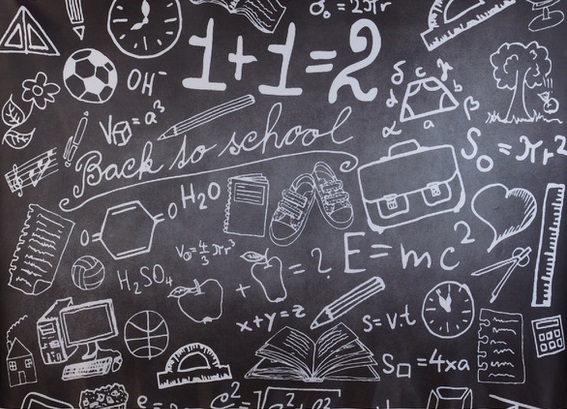 σ₀ = 2πr
1+1=2
OH⁻
V = a³
δ c γ
d b
α a β
Back to school
S₀ = πr²
H₂O
O O
V₀=4/3πr³
E=mc²
H₂SO₄
+ = ?
x+y=z
S=v.t
S□=4xa
c²=